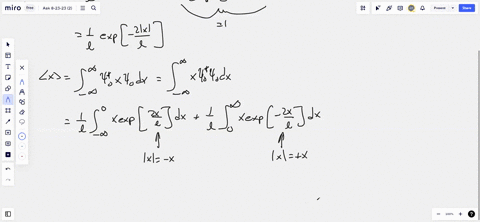 miro Ask 8-23-23 (2) Present Share
=1
= 1/l exp[-2|x|/l]
<x> = ∫_{-∞}^{∞} ψ₀* x ψ₀ dx = ∫_{-∞}^{∞} x ψ₀* ψ₀ dx
= 1/l ∫_{-∞}^{0} x exp[2x/l] dx + 1/l ∫_{0}^{∞} x exp[-2x/l] dx
|x|=-x |x|=+x